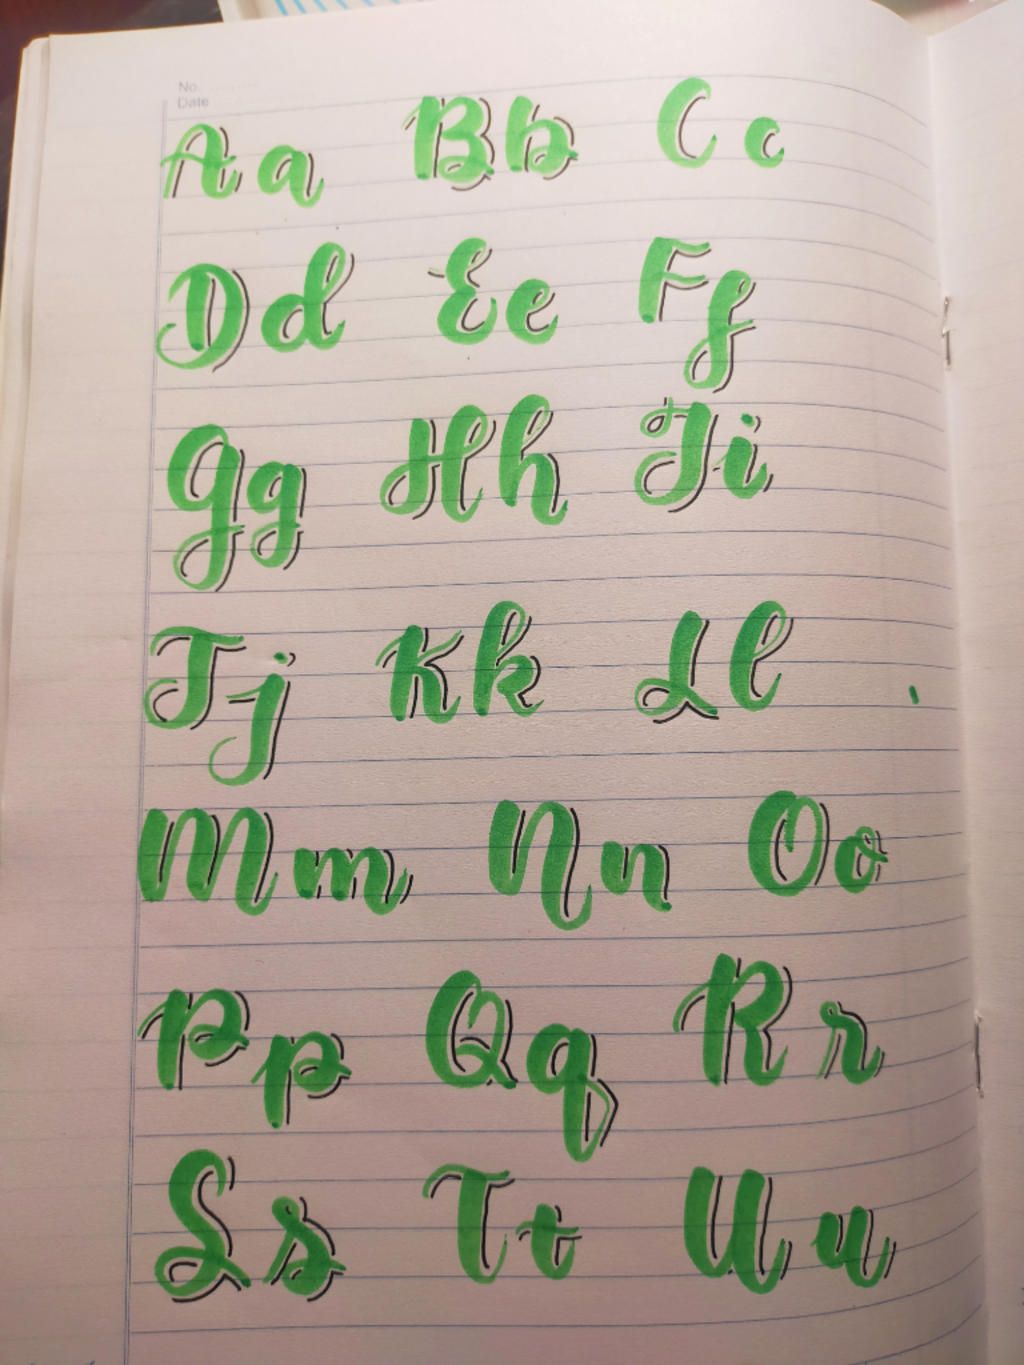 No.
Date
Aa Bb Cc
Dd Ee Ff
Gg Hh Ii
Jj Kk Ll
Mm Nn Oo
Pp Qq Rr
Ss Tt Uu